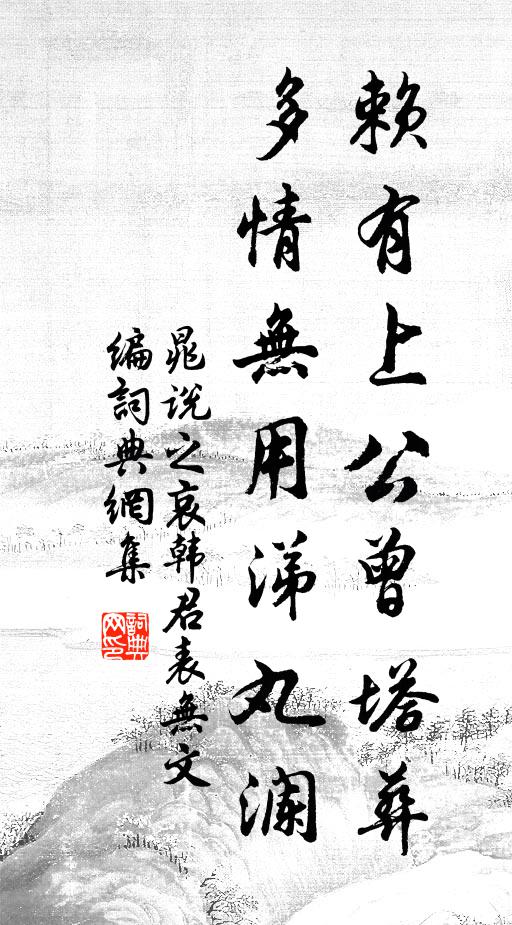 賴有上公曾塔葬
多情無用涕丸瀾
晁說之哀韩君表無文
編詞典網集
詞典网印